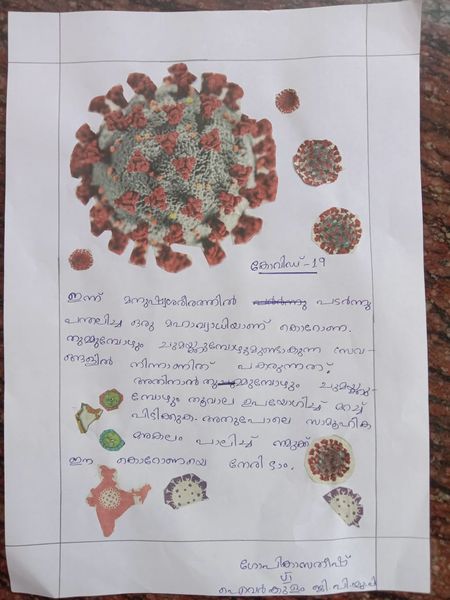 കോവിഡ് -19
ഇന്ന് മനുഷ്യശരീരത്തിൽ പടർന്നു
പന്തലിച്ച ഒരു മഹാവ്യാധിയാണ് കൊറോണ.
തുമ്മുമ്പോഴും ചുമയ്ക്കുമ്പോഴുമുണ്ടാകുന്ന സേവ-
ങ്ങളിൽ നിന്നാണിത് പകരുന്നത്.
അതിനാൽ തുമ്മുമ്പോഴും ചുമയ്ക്കു-
മ്പോഴും തൂവാല ഉപയോഗിച്ച് മറച്ച്
പിടിക്കുക. അതുപോലെ സാമൂഹിക
അകലം പാലിച്ച് നമുക്ക്
ഈ കൊറോണയെ നേരിടാം.
ഗോപികാസതീഷ്
VI
ജി.വി.യു.പി